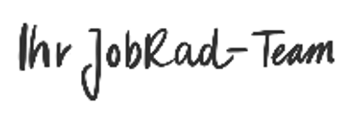 Ihr JobRad-Team